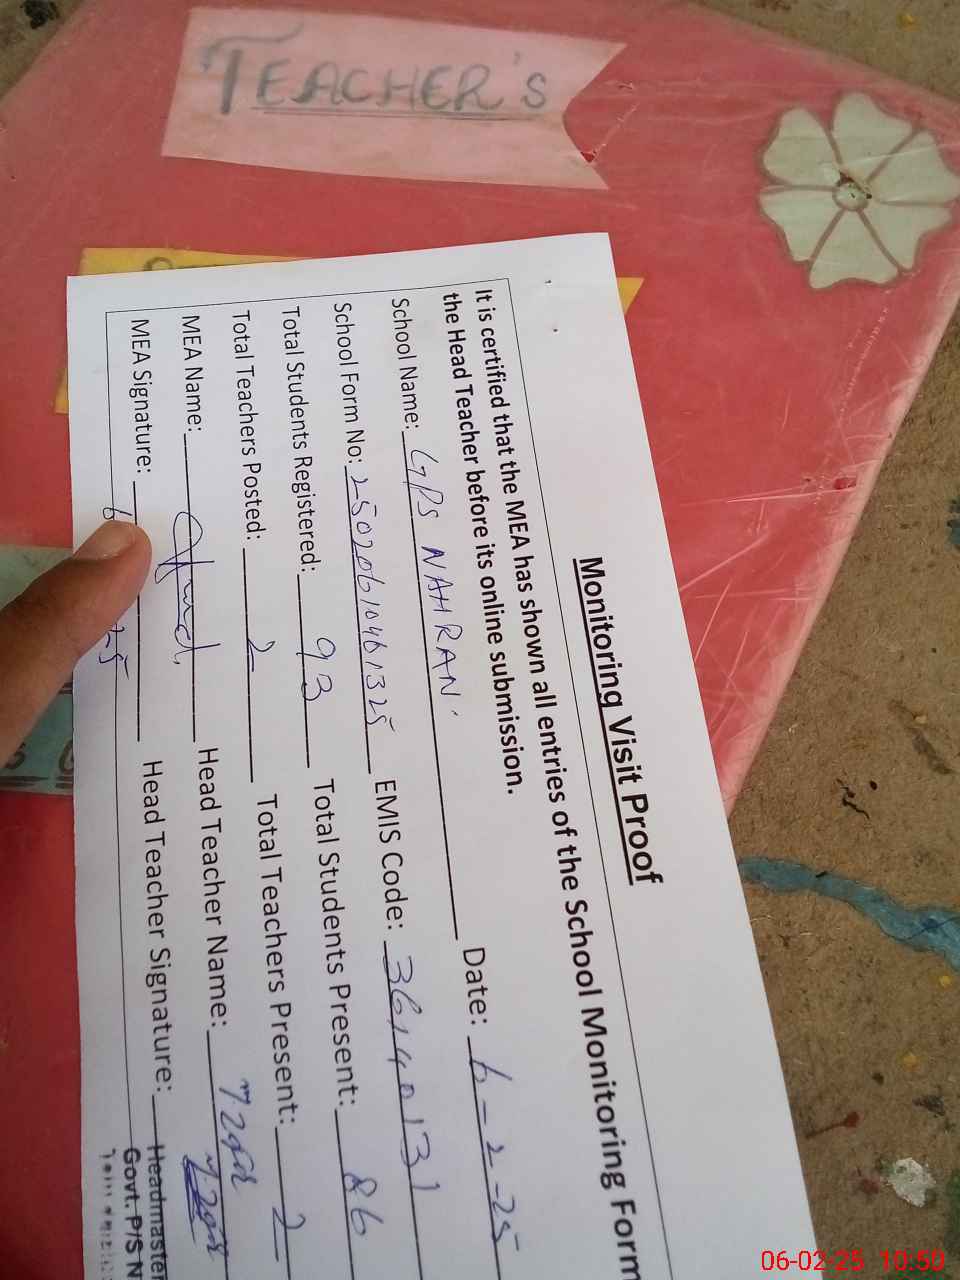 TEACHER'S
Monitoring Visit Proof
It is certified that the MEA has shown all entries of the School Monitoring Form
the Head Teacher before its online submission.
School Name: GPS NAHRAN Date: 6-2-25
School Form No: 25020610461325 EMIS Code: 36140131
Total Students Registered: 93 Total Students Present: 86
Total Teachers Posted: 2 Total Teachers Present: 2
MEA Name: Head Teacher Name:
MEA Signature: Head Teacher Signature:
6 25
Headmaster
Govt. P/S N
06-02-25 10:50